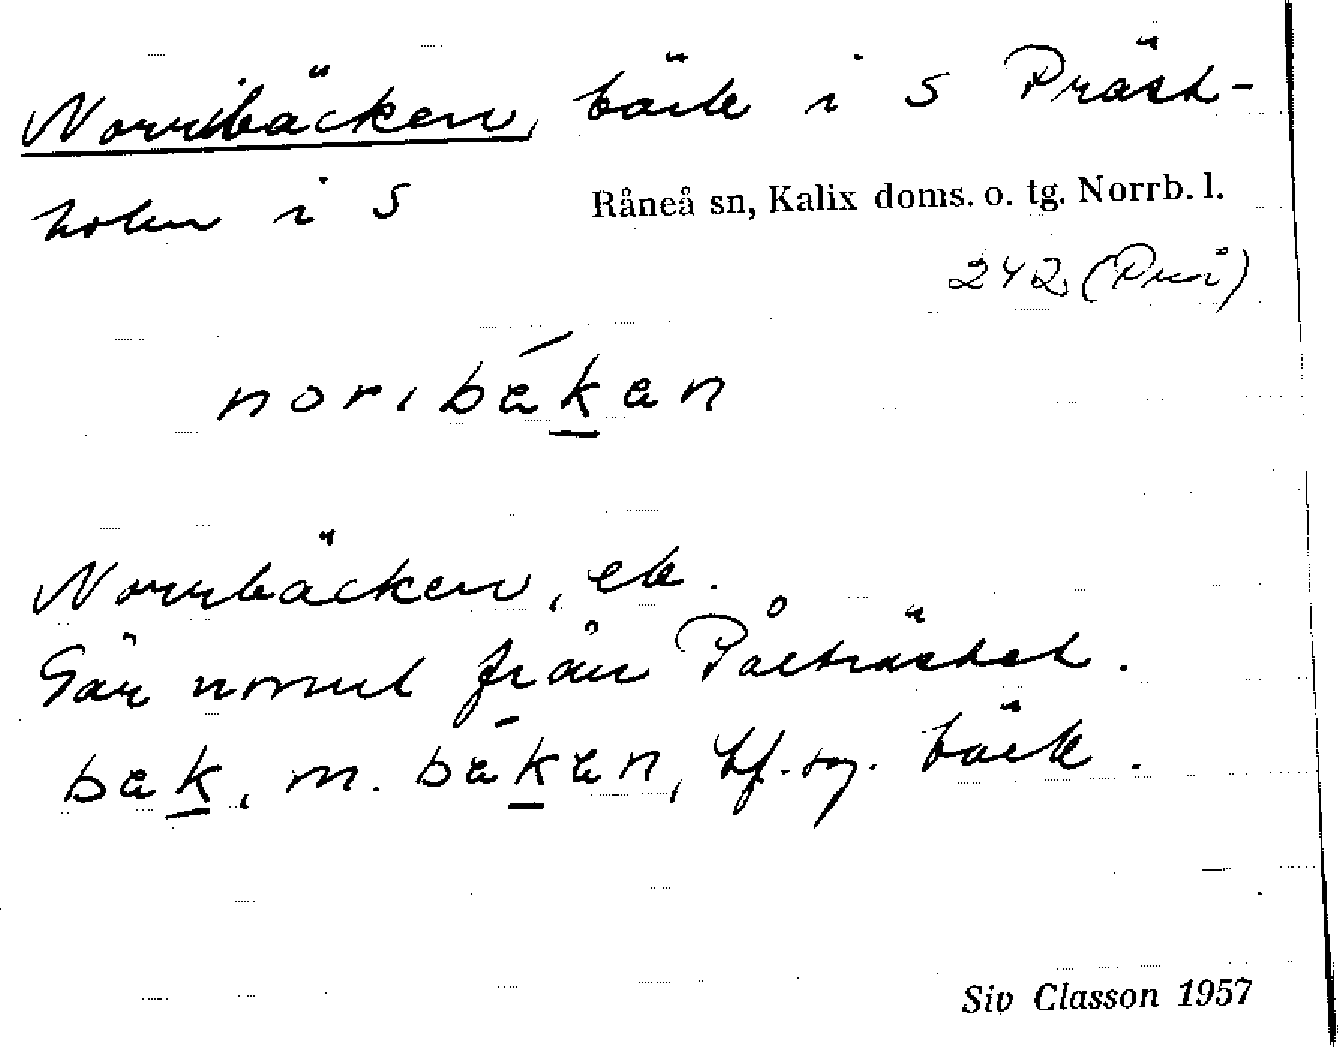 Norribäcken, bäck i S Präst-
holm i S
Råneå sn, Kalix doms. o. tg. Norrb. l.
242 (Prä)
noribäkan
Norrbäcken, ek.
Går norrut från Påträsket.
bäk, m. bäkan, bf. sg. bäck.
Siv Classon 1957